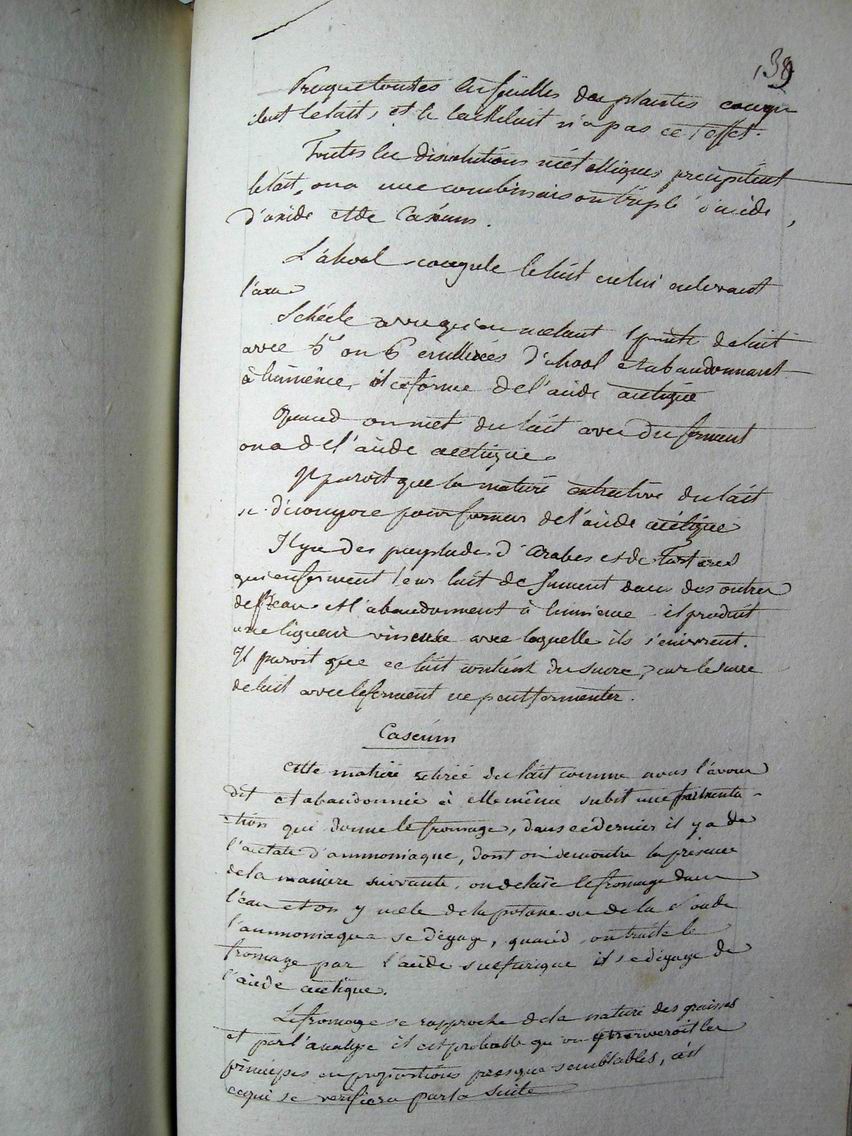 139
Presque toutes les feuilles des plantes coagu
lent le lait, et le lait n'a pas cet effet.
Toutes les dissolutions métalliques précipitent
le lait, on a une combinaison triple d'acide,
d'oxide et de Caséum.
L'alcool coagule le lait en lui enlevant
l'eau
Schéele a vu qu'en mêlant 1 pinte de lait
avec 5 ou 6 cuillérées d'alcool et abandonnant
à lui même, il se forme de l'acide acétique
Quand on met du lait avec du ferment
on a de l'acide acétique.
Il paroit que la matière extractive du lait
se décompose pour former de l'acide acétique
Il y a des peuplades d'arabes et de Tartares
qui enferment leur lait de jument dans des outres
de Peau et l'abandonnent à lui même il produit
une liqueur vineuse avec laquelle ils s'enivrent.
Il paroit que ce lait contient du sucre, car le sucre
de lait avec le ferment ne peut fermenter.
Caseum
Cette matière retirée du lait comme nous l'avons
dit et abandonnée à elle même subit une fermenta-
tion qui donne le fromage, dans ce dernier il y a de
l'acétate d'ammoniaque, dont on démontre la présence
de la manière suivante. on délaie le fromage dans
l'eau et on y mêle de la potasse ou de la soude
l'ammoniaque se dégage, quand on traite le
fromage par l'acide sulfurique il se dégage de
l'acide acétique.
Le fromage se rapproche de la nature des graisses
et par l'analyse il est probable qu'on trouveroit les
principes en proportions presque semblables, c'est
ce qui se verifiera par la suite